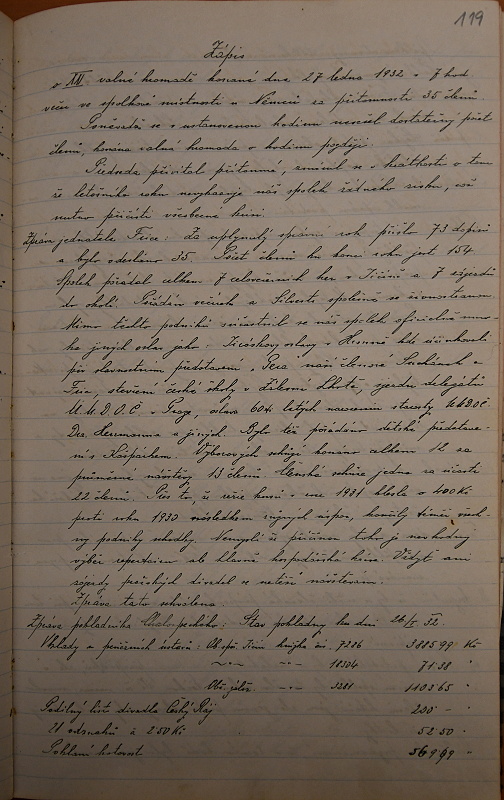 119
Zápis
o XXI valné hromadě konané dne 27 ledna 1932 v 7 hod.
večer ve spolkové místnosti u Němců za přítomnosti 35 členů.
Poněvadž se v ustanovenou hodinu nesešel dostatečný počet
členů, konána valná hromada o hodinu později.
Předseda přivítal přítomné, zmínil se v krátkosti o tom
že letošního roku nevykazuje náš spolek žádného zisku, což
nutno přičísti všeobecné krisi.
Zpráva jednatele Fejce: Za uplynulý správní rok přišlo 73 dopisů
a bylo odesláno 35. Počet členů ku konci roku jest 154.
Spolek pořádal celkem 7 celovečerních her v Jičíně a 7 zájezdů
do okolí. Pořádán věneček a Silvestr společně se živnostnictvem.
Mimo těchto podniků súčastnil se náš spolek oficielně mno-
ha jiných oslav jako: Jiráskovy oslavy v Hronově kde účinkovali
při slavnostním představení naši členové Suchánek a
Fejc, otevření české školy v Lhotě, sjezdu delegátů
Ú.M.D.O.Č. v Praze, oslava 60ti letých narozenin starosty ÚMDOČ
Dra. Hermanna a jiných. Bylo též pořádáno dětské představe-
ní s Kašpárkem. Výborových schůzí konáno celkem 12 za
průměrné návštěvy 13 členů. Členská schůze jedna za účasti
22 členů. Přes to, že režie her v roce 1931 klesla o 400 Kč
proti roku 1930 následkem různých úspor, končily téměř všech-
ny podniky schodky. Nemyslí že příčinou toho je nevhodný
výběr repertoiru ale hlavně hospodářská krise. Vždyť ani
zájezdy pražských divadel se netěší návštěvám.
Zpráva tato schválena.
Zpráva pokladníka: Stav pokladny ku dni 26/I 32.
Vklady u peněžních ústavů: Ob. spoř. Jičín knížka čís. 7286 3885.99 Kč
18304 71.38 "
Obč. zálož. 3281 1103.65 "
Podílný list divadla Český Ráj 200 - "
21 odznaků à 2.50 Kč 52.50 "
Pokladní hotovost 569.69 "